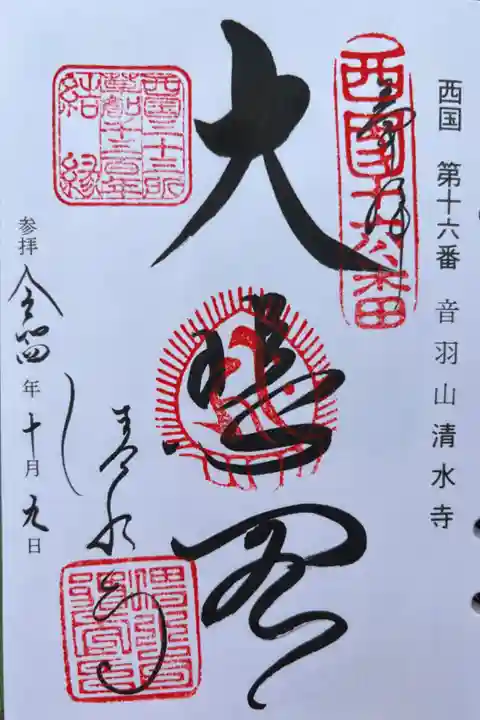 西国 第十六番 音羽山 清水寺
西国十六番
奉拝
大悲閣
西国三十三所
草創千三百年
結縁
清水寺
参拝 令四年 十月 九日